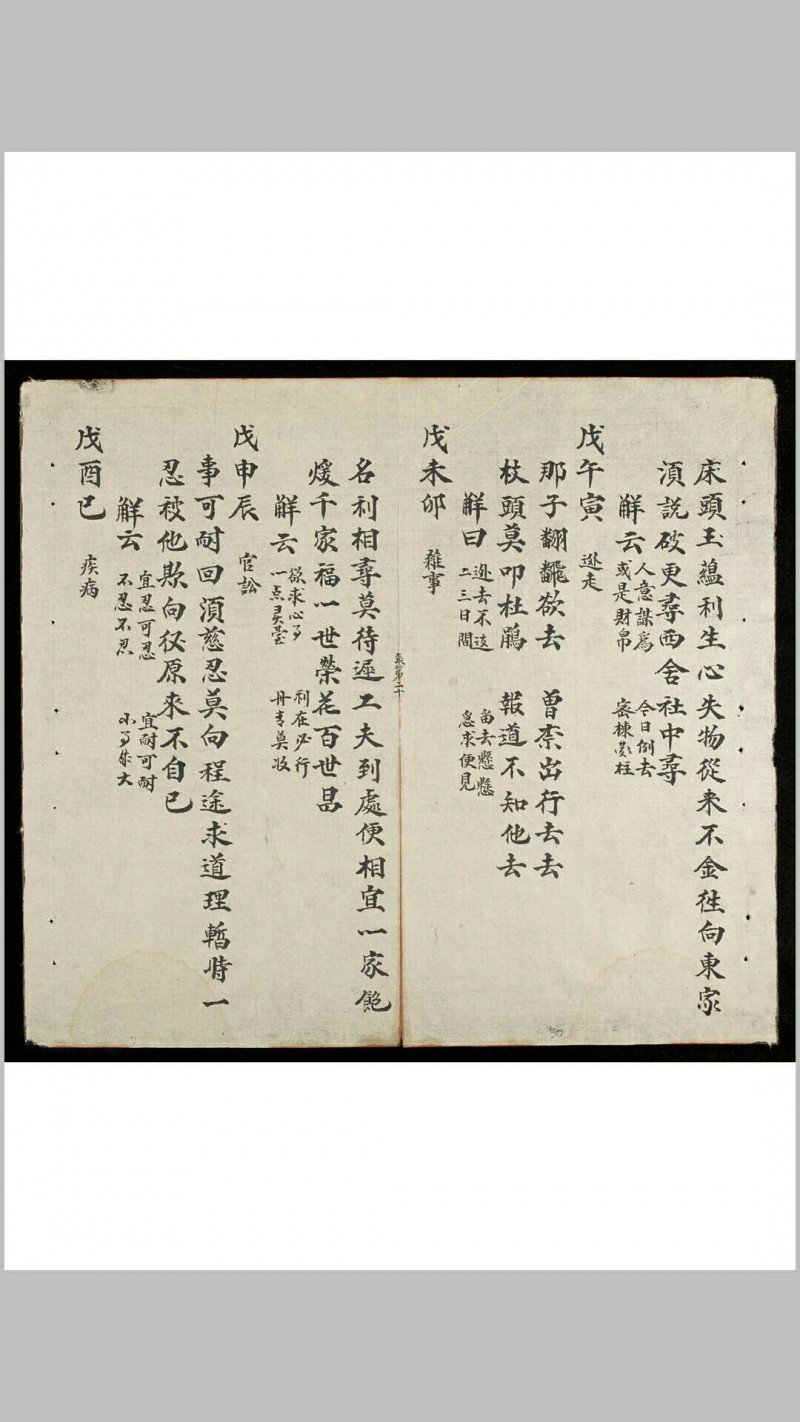 床頭玉蘊利生心失物從来不金徃向東家
湏説破更尋西舍社中尋
觧云 人意謀爲 或是財帛 今日倒去 密棟梁柱
戊午寅 逊走
那子翻飜欲去 曾柰出行去去
杖頭莫叩杜鵑 報道不知他去
觧曰 逊去不返 二三日間 畄去懸懸 急求便見
戊未卯 雜事
名利相尋莫待遲工夫到處便相宜一家飽
煖千家福一世榮花百世昌
觧云 欲求心 一点灵䑓 利在必行 丹青莫收
戊申辰 官訟
事可耐回湏慈忍莫向程途求道理暫時一
忍被他欺向後原來不自已
觧云 宜忍可忍 不忍不忍 宜耐可耐 小 成大
戊酉巳 疾病